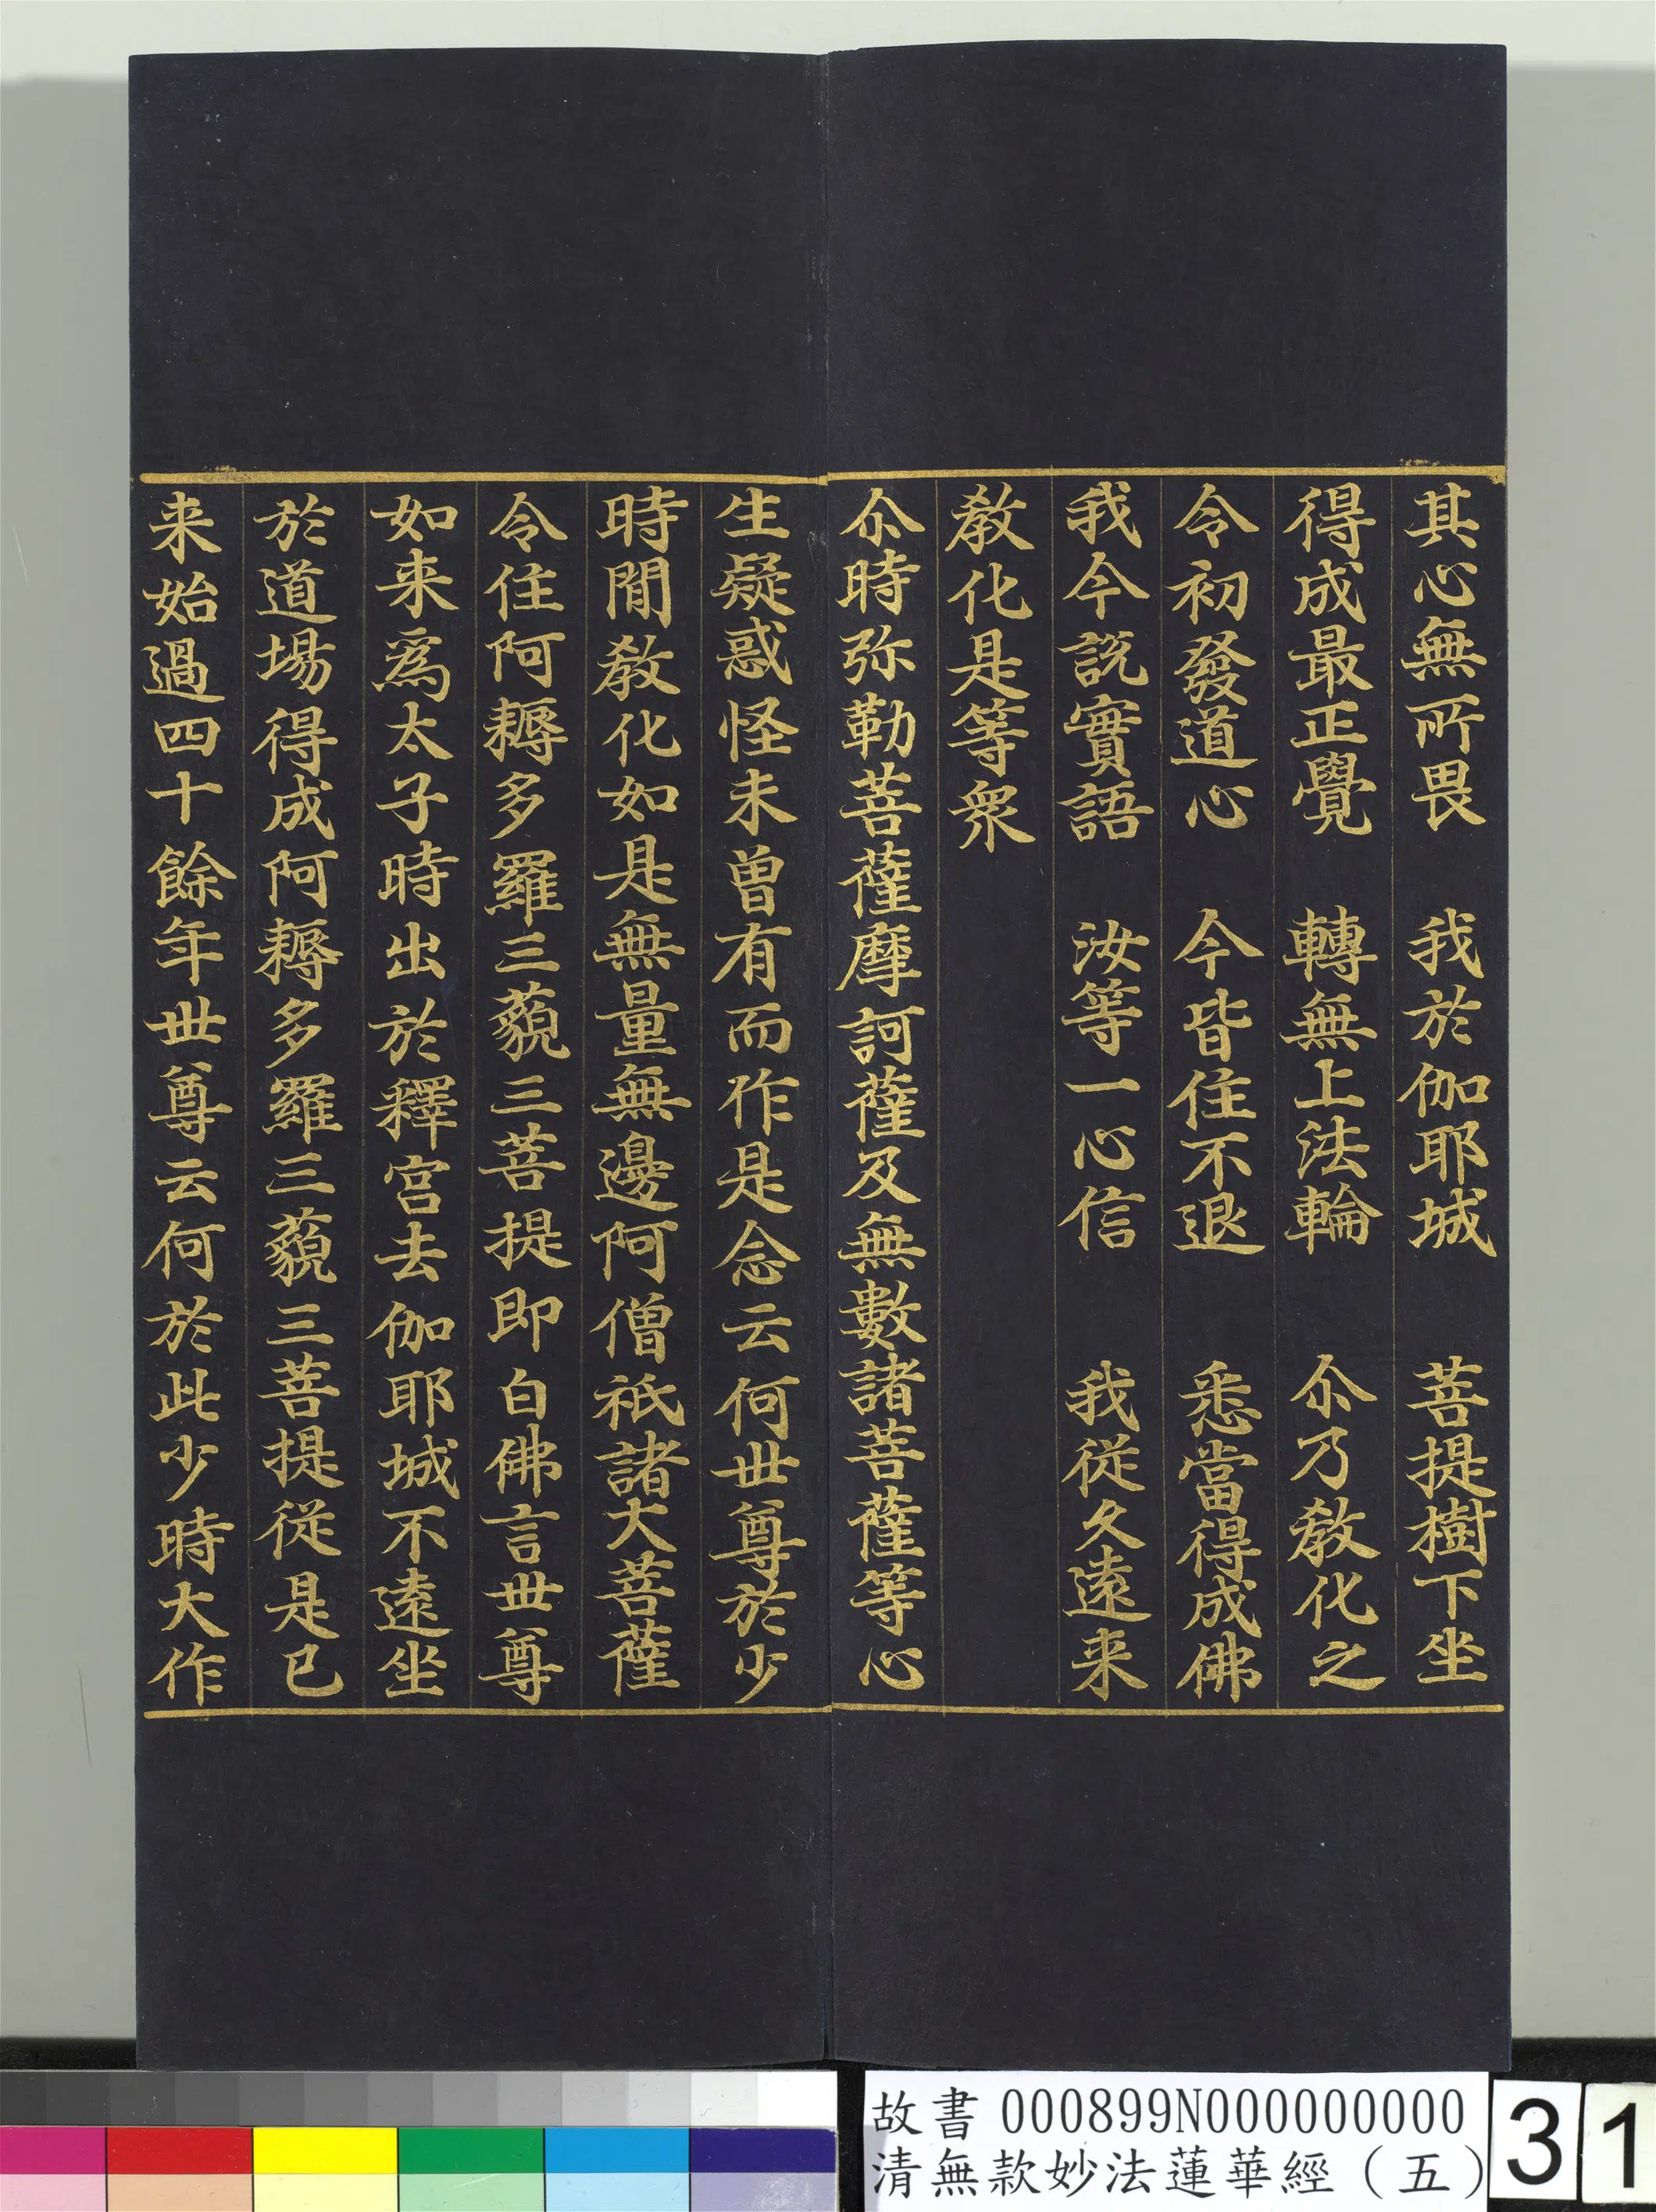 其心無所畏　我於伽耶城　菩提樹下坐
得成最正覺　轉無上法輪　尒乃教化之
令初發道心　今皆住不退　悉當得成佛
我今說實語　汝等一心信　我從久遠来
教化是等衆
尒時弥勒菩薩摩訶薩及無數諸菩薩等心
生疑惑怪未曾有而作是念云何世尊於少
時閒教化如是無量無邊阿僧祇諸大菩薩
令住阿耨多羅三藐三菩提即白佛言世尊
如来爲太子時出於釋宮去伽耶城不遠坐
於道場得成阿耨多羅三藐三菩提從是已
来始過四十餘年世尊云何於此少時大作
故書 000899N000000000
清無款妙法蓮華經（五）
31